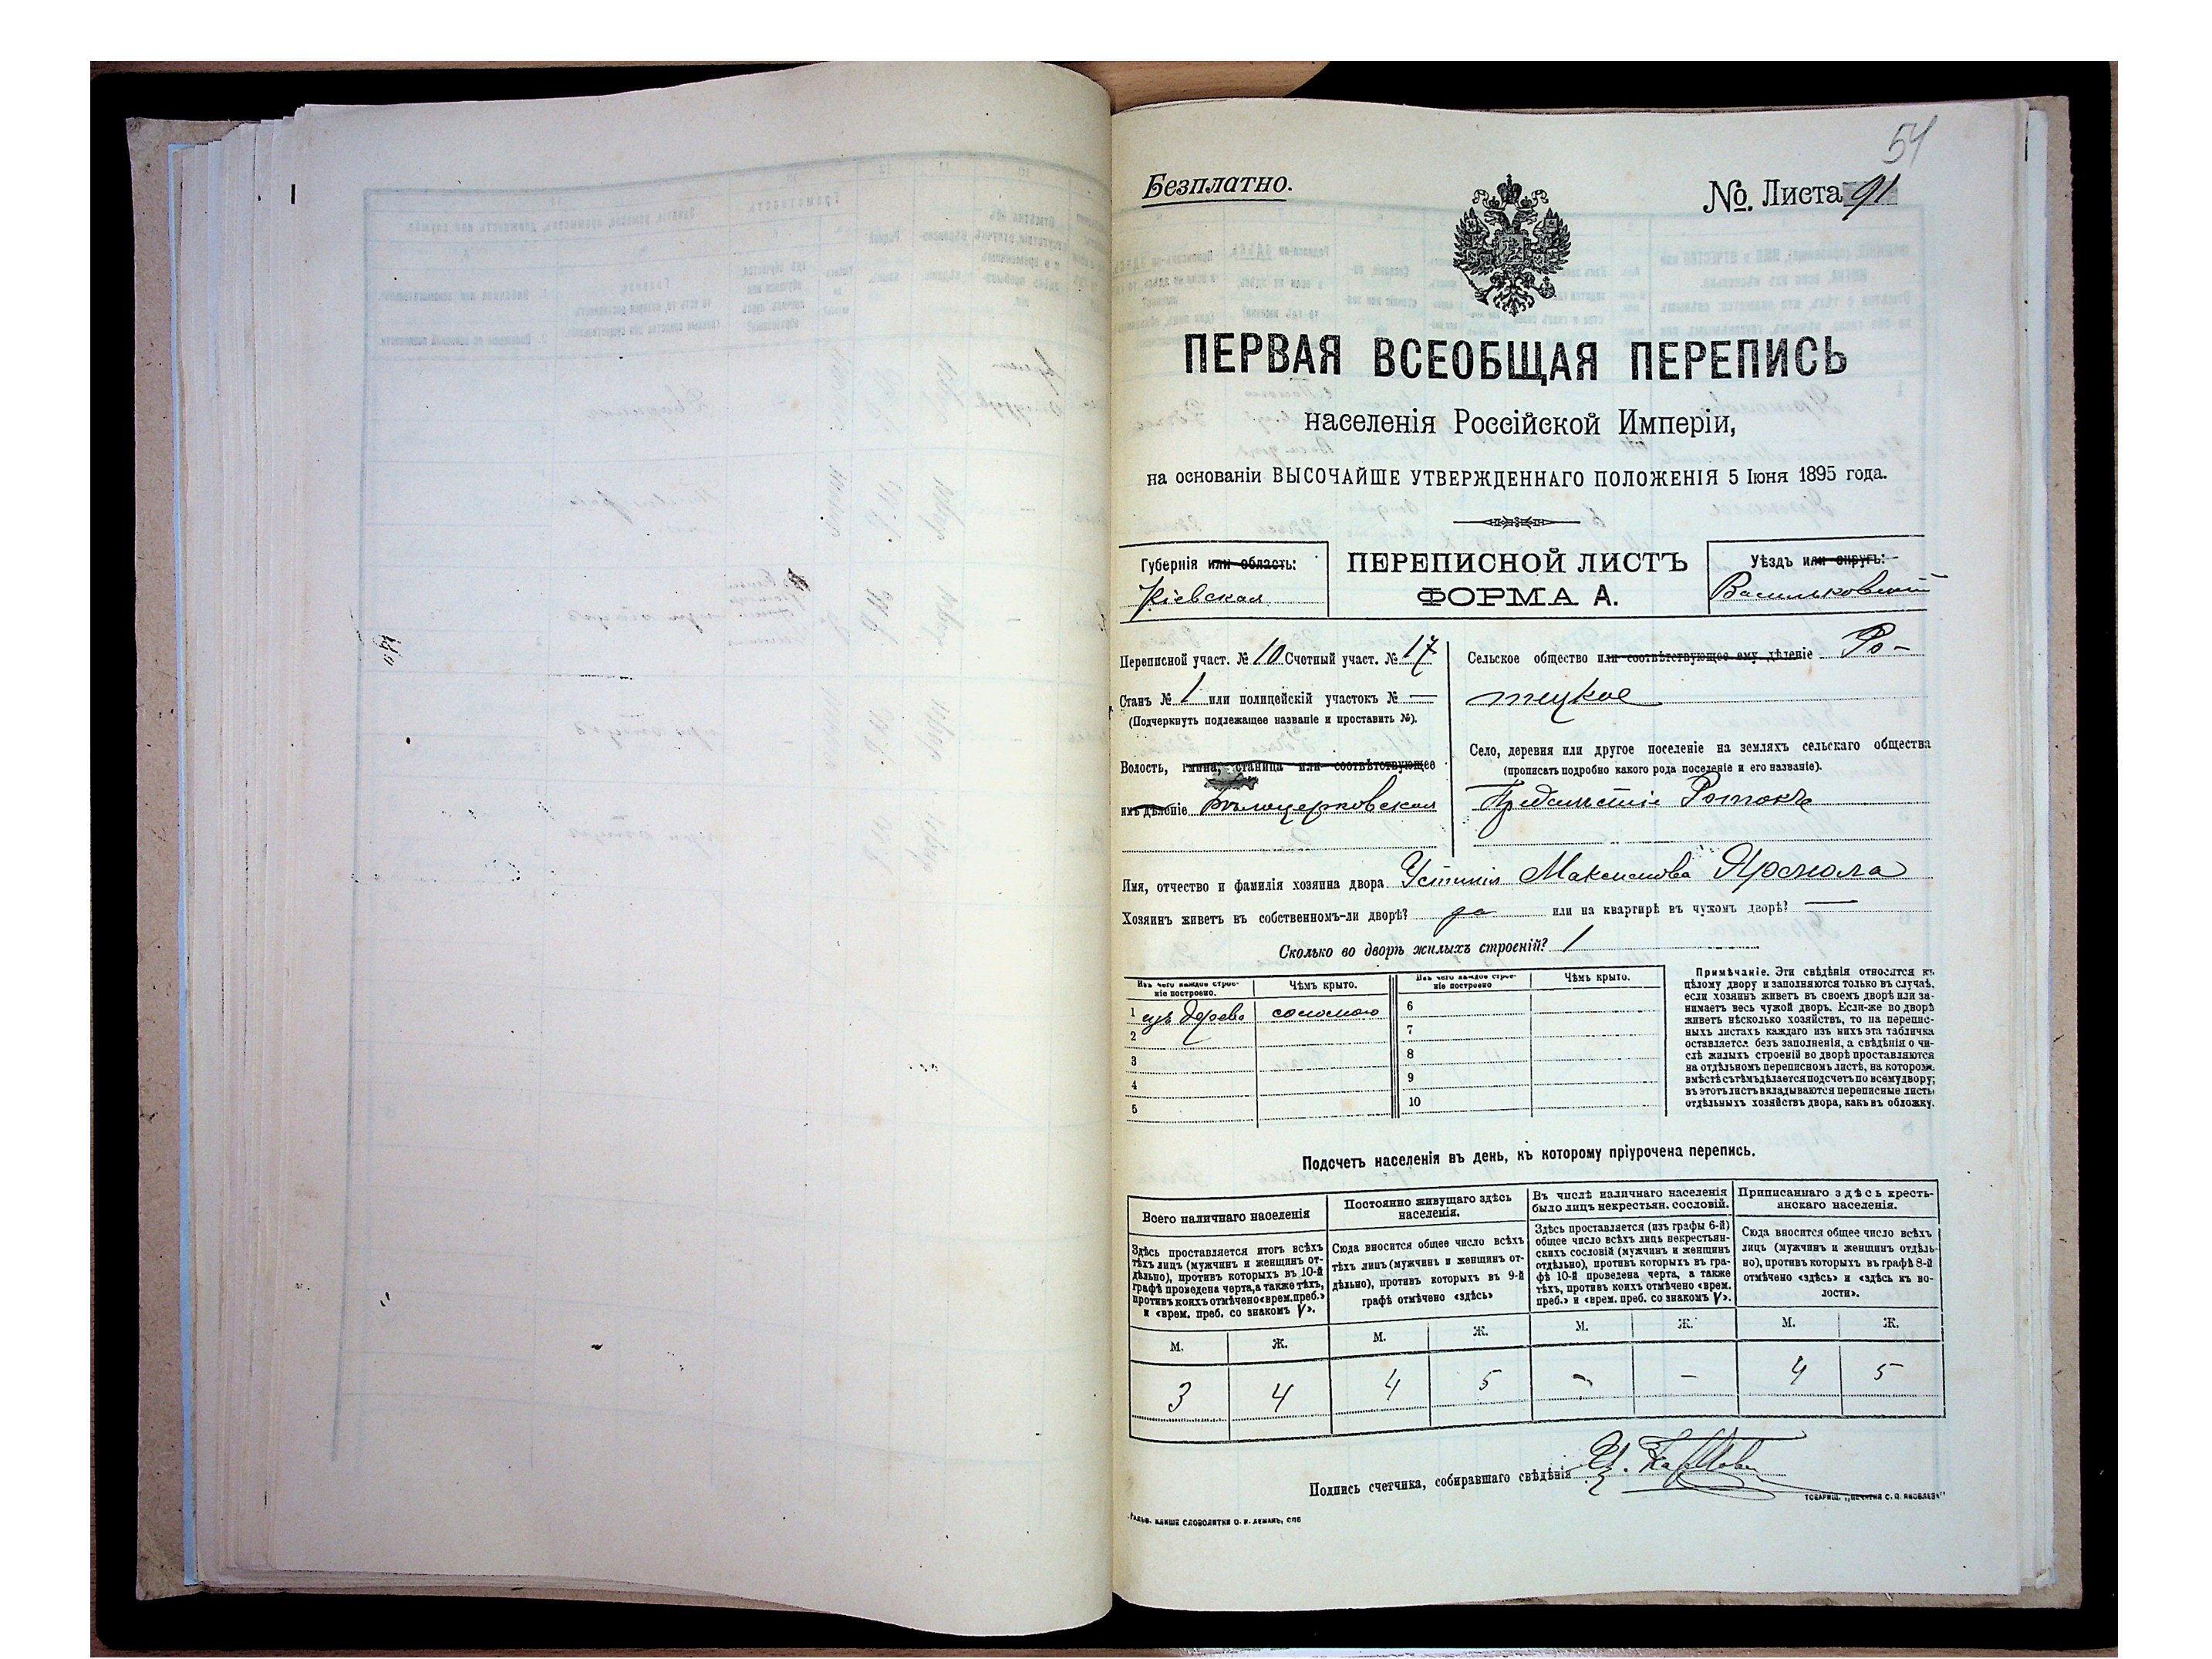 54
Безплатно.
№. Листа 91
ПЕРВАЯ ВСЕОБЩАЯ ПЕРЕПИСЬ
населенія Россійской Имперіи,
на основаніи ВЫСОЧАЙШЕ УТВЕРЖДЕННАГО ПОЛОЖЕНІЯ 5 Іюня 1895 года.
Губернія или область:
Кіевская
ПЕРЕПИСНОЙ ЛИСТЪ
ФОРМА А.
Уѣздъ или округъ:
Васильковскій
Переписной участ. № 10 Счетный участ. № 17
Станъ № 1 или полицейскій участокъ № —
(Подчеркнуть подлежащее названіе и проставить №).
Волость, гмина, станица или соотвѣтствующее
имъ дѣленіе Бѣлоцерковская
Сельское общество или соотвѣтствующее ему дѣленіе Ро-
токское
Село, деревня или другое поселеніе на земляхъ сельскаго общества
(прописать подробно какого рода поселеніе и его названіе).
Предмѣстіе Ротокъ
Имя, отчество и фамилія хозяина двора Устинія Максимова
Хозяинъ живетъ въ собственномъ-ли дворѣ? да или на квартирѣ въ чужомъ дворѣ? —
Сколько во дворѣ жилыхъ строеній? 1
Изъ чего каждое строе-
ніе построено.
Чѣмъ крыто.
Изъ чего каждое строе-
ніе построено
Чѣмъ крыто.
1 изъ дерева соломою
2
3
4
5
6
7
8
9
10
Примѣчаніе. Эти свѣдѣнія относятся къ
цѣлому двору и заполняются только въ случаѣ,
если хозяинъ живетъ въ своемъ дворѣ или за-
нимаетъ весь чужой дворъ. Если-же во дворѣ
живетъ нѣсколько хозяйствъ, то на перепис-
ныхъ листахъ каждаго изъ нихъ эта табличка
оставляется безъ заполненія, а свѣдѣнія о чи-
слѣ жилыхъ строеній во дворѣ проставляются
на отдѣльномъ переписномъ листѣ, на которомъ
вмѣстѣ съ тѣмъ дѣлается подсчетъ по всему двору;
въ этотъ листъ вкладываются переписные листы
отдѣльныхъ хозяйствъ двора, какъ въ обложку.
Подсчетъ населенія въ день, къ которому пріурочена перепись.
Всего наличнаго населенія
Здѣсь проставляется итогъ всѣхъ
тѣхъ лицъ (мужчинъ и женщинъ от-
дѣльно), противъ которыхъ въ 10-й
графѣ проведена черта, а также тѣхъ,
противъ коихъ отмѣчено «врем. преб.»
и «врем. преб. со знакомъ V».
Постоянно живущаго здѣсь
населенія.
Сюда вносится общее число всѣхъ
тѣхъ лицъ (мужчинъ и женщинъ от-
дѣльно), противъ которыхъ въ 9-й
графѣ отмѣчено «здѣсь»
Въ числѣ наличнаго населенія
было лицъ некрестьян. сословій.
Здѣсь проставляется (изъ графы 6-й)
общее число всѣхъ лицъ некрестьян-
скихъ сословій (мужчинъ и женщинъ
отдѣльно), противъ которыхъ въ гра-
фѣ 10-й проведена черта, а также
тѣхъ, противъ коихъ отмѣчено «врем.
преб.» и «врем. преб. со знакомъ V».
Приписаннаго здѣсь кресть-
янскаго населенія.
Сюда вносится общее число всѣхъ
лицъ (мужчинъ и женщинъ отдѣль-
но), противъ которыхъ въ графѣ 8-й
отмѣчено «здѣсь» и «здѣсь къ во-
лости».
М. Ж. М. Ж. М. Ж. М. Ж.
3 4 4 5 — — 4 5
Подпись счетчика, собиравшаго свѣдѣнія
ТОВАРИЩ. „ПЕЧАТНЯ С. П. ЯКОВЛЕВА“
КЛИШЕ СЛОВОЛИТНИ О. И. ЛЕМАНЪ, СПБ